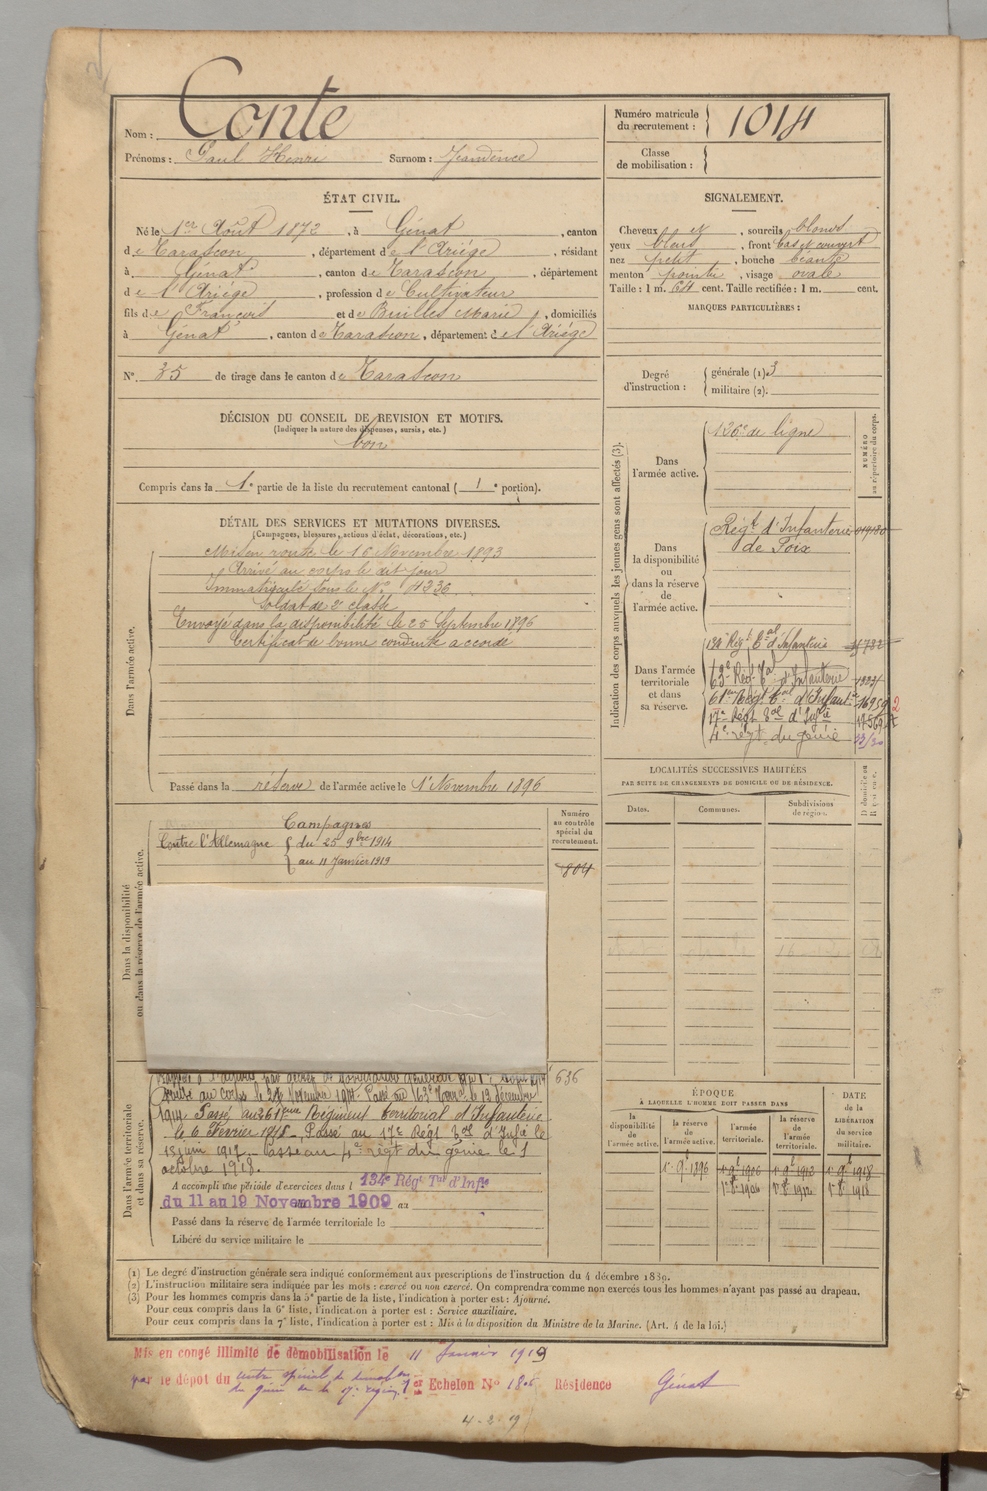 Nom : Conte
Prénoms : Paul Henri Surnom : Jeandence
Numéro matricule du recrutement : 1014
Classe de mobilisation :
ÉTAT CIVIL.
Né le 1er Août 1872, à Génat, canton
de Tarascon, département de l'Ariége, résidant
à Génat, canton de Tarascon, département
de l'Ariége, profession de Cultivateur
fils de François et de Buillès Marie, domiciliés
à Génat, canton de Tarascon, département de l'Ariége
N° 35 de tirage dans le canton de Tarascon
SIGNALEMENT.
Cheveux et, sourcils blonds
yeux bleus, front bas et couvert
nez petit, bouche béante
menton pointu, visage ovale
Taille : 1 m. 64 cent. Taille rectifiée : 1 m. cent.
MARQUES PARTICULIÈRES :
Degré d'instruction : générale (1). 3
militaire (2).
DÉCISION DU CONSEIL DE REVISION ET MOTIFS.
(Indiquer la nature des dispenses, sursis, etc.)
bon
Compris dans la 1e partie de la liste du recrutement cantonal (1e portion).
DÉTAIL DES SERVICES ET MUTATIONS DIVERSES.
(Campagnes, blessures, actions d'éclat, décorations, etc.)
Dans l'armée active.
Mis en route le 16 Novembre 1893
Arrivé au corps le dit jour
Immatriculé sous le N° 4336
Soldat de 2e classe
Envoyé dans la disponibilité le 25 Septembre 1896
Certificat de bonne conduite accordé
Passé dans la réserve de l'armée active le 1er Novembre 1896
Indication des corps auxquels les jeunes gens sont affectés (3).
NUMÉRO au répertoire du corps.
Dans l'armée active.
126e de ligne
Dans la disponibilité ou dans la réserve de l'armée active.
Régt d'Infanterie
de Foix
Dans l'armée territoriale et dans sa réserve.
134e Régt tal d'Infanterie
63e Rég. tal d'Infanterie
61e Régt tal d'Infant. 16959
17e Régt tal d'Infie
4e régt du génie
LOCALITÉS SUCCESSIVES HABITÉES
PAR SUITE DE CHANGEMENTS DE DOMICILE OU DE RÉSIDENCE.
Dates. Communes. Subdivisions de région.
Dans la disponibilité ou dans la réserve de l'armée active.
Campagnes
Contre l'Allemagne du 25 9bre 1914
au 11 Janvier 1919
Numéro au contrôle spécial du recrutement.
804
636
Dans l'armée territoriale et dans sa réserve.
Rappelé à l'activité par décret de mobilisation
Arrivé au corps le Novembre 1914. Passé au 163e le 13 décembre
1914 Passé au 261eme Régiment territorial d'Infanterie
le 6 Février 1915. Passé au 17e Régt tal d'Infie le
15 juin 1917. Passé au 4e régt du génie le 1
octobre 1918.
A accompli une période d'exercices dans l 134e Régt Tal d'Infie
du 11 au 19 Novembre 1909 au
Passé dans la réserve de l'armée territoriale le
Libéré du service militaire le
ÉPOQUE
À LAQUELLE L'HOMME DOIT PASSER DANS
la disponibilité de l'armée active. la réserve de l'armée active. l'armée territoriale. la réserve de l'armée territoriale.
DATE de la LIBÉRATION du service militaire.
1er 9bre 1896 1er 9bre 1906 1er 9bre 1912 1er 9bre 1918
1er 8bre 1906 1er 8bre 1912 1er 8bre 1918
(1) Le degré d'instruction générale sera indiqué conformément aux prescriptions de l'instruction du 4 décembre 1889.
(2) L'instruction militaire sera indiquée par les mots : exercé ou non exercé. On comprendra comme non exercés tous les hommes n'ayant pas passé au drapeau.
(3) Pour les hommes compris dans la 5e partie de la liste, l'indication à porter est : Ajourné.
Pour ceux compris dans la 6e liste, l'indication à porter est : Service auxiliaire.
Pour ceux compris dans la 7e liste, l'indication à porter est : Mis à la disposition du Ministre de la Marine. (Art. 4 de la loi.)
Mis en congé illimité de démobilisation le 11 Janvier 1919
par le dépôt du centre spécial de démob. du génie de la 17e région 1er Echelon No 1805 Résidence Génat
4-2-19